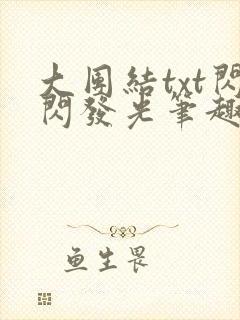 大團結txt閃
閃發光筆趣
鱼生畏